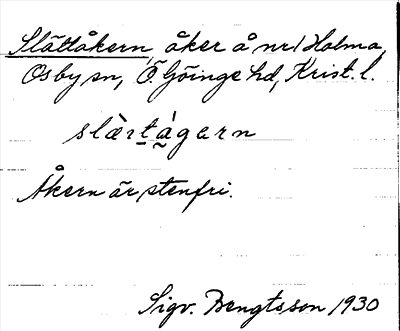 Slättåkern, åker å nr 1 Holma,
Osby sn, Ö. Göinge hd, Krist. l.
slær̀tågarn
Åkern är stenfri.
Sigv. Bengtsson 1930